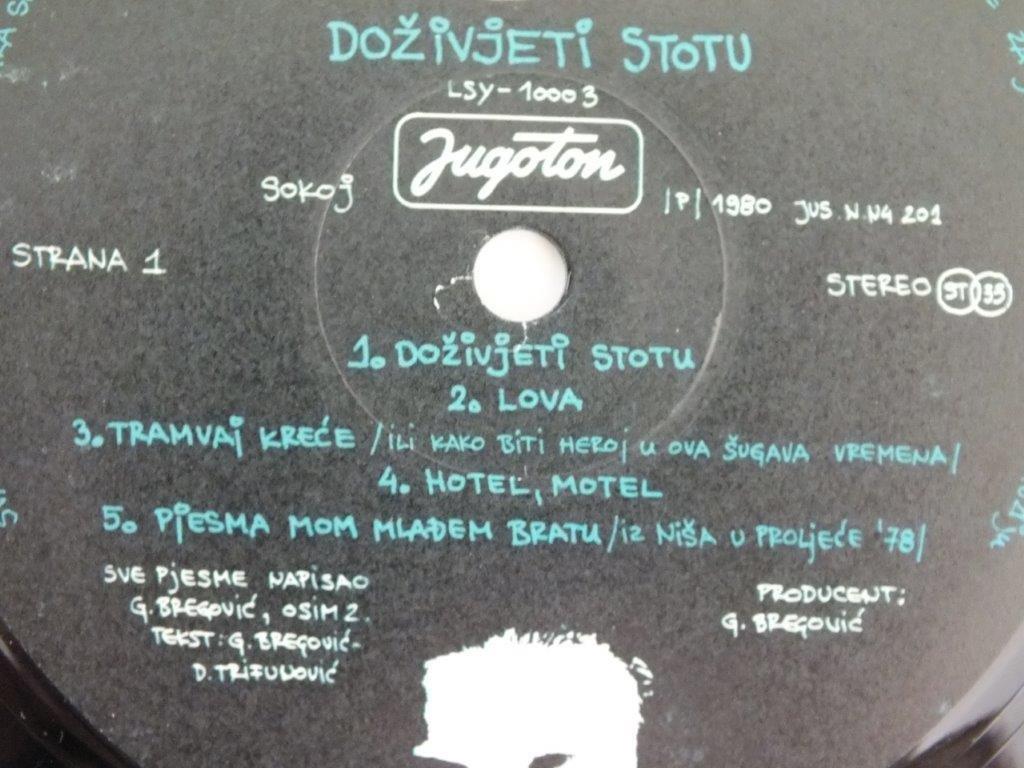 DOŽIVJETI STOTU
LSY-10003
Jugoton
SOKOJ
|P| 1980 JUS.N.N4 201
STRANA 1
STEREO ST 33
1. DOŽIVJETI STOTU
2. LOVA
3. TRAMVAJ KREĆE /ILI KAKO BITI HEROJ U OVA ŠUGAVA VREMENA/
4. HOTEL, MOTEL
5. PJESMA MOM MLAĐEM BRATU /IZ NIŠA U PROLJEĆE '78/
SVE PJESME NAPISAO
G. BREGOVIĆ, OSIM 2.
TEKST: G. BREGOVIĆ-
D. TRIFUNOVIĆ
PRODUCENT:
G. BREGOVIĆ